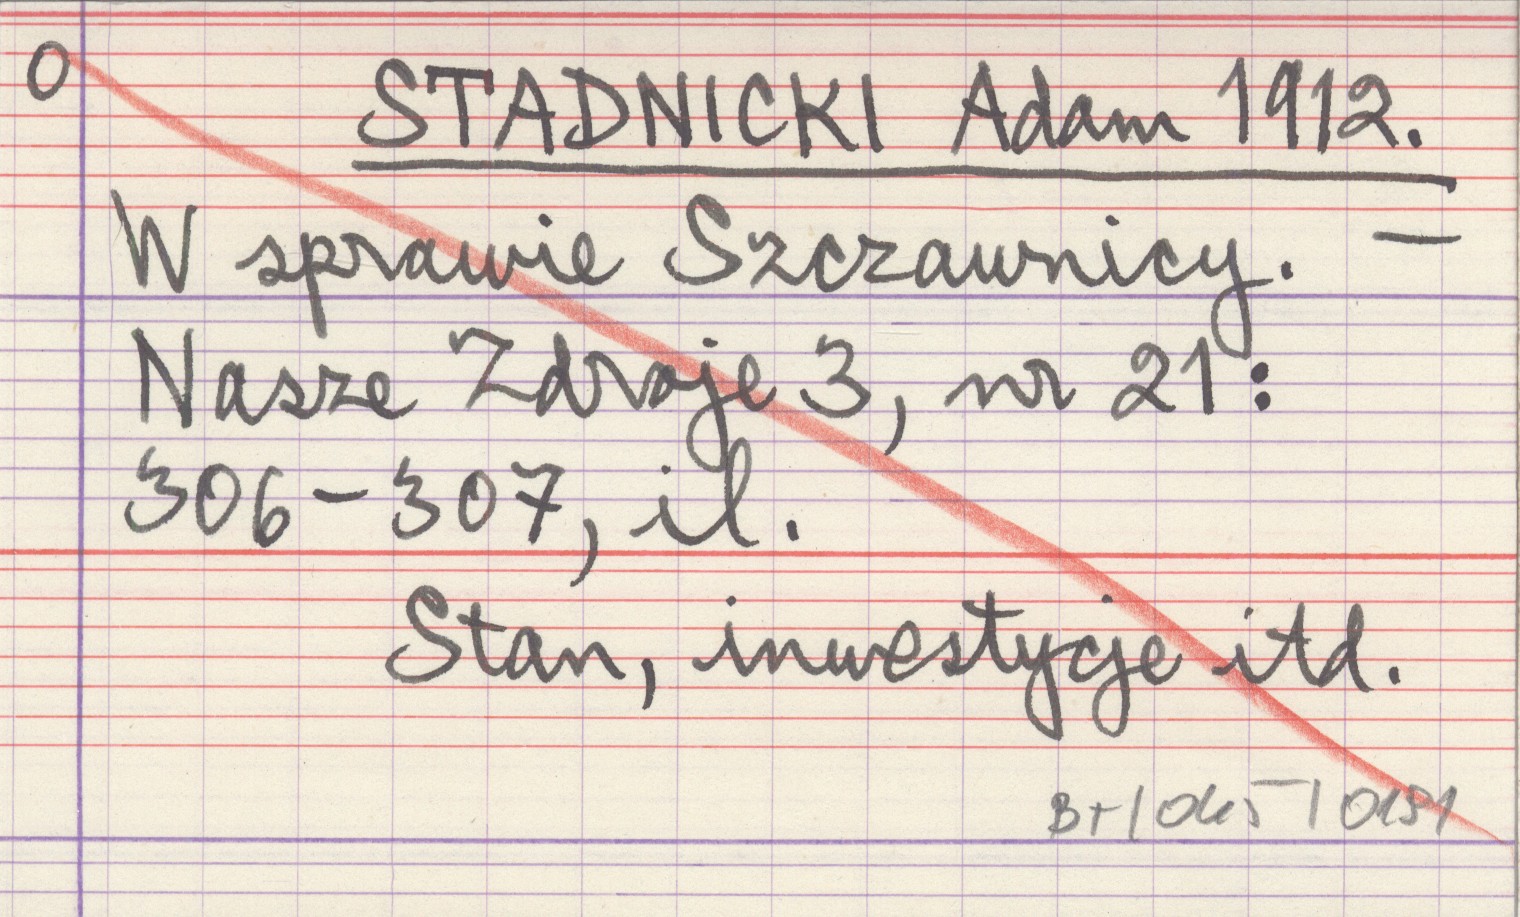 O
STADNICKI Adam 1912.
W sprawie Szczawnicy. —
Nasze Zdroje 3, nr 21:
306-307, il.
Stan, inwestycje itd.